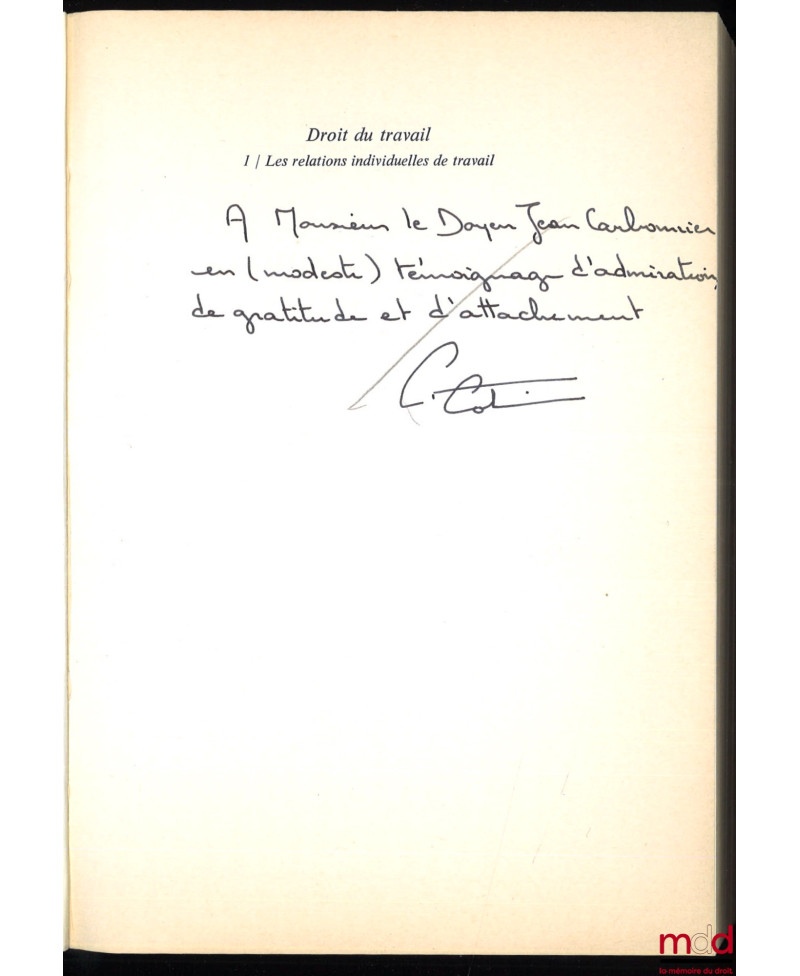 Droit du travail
1 | Les relations individuelles de travail
A Monsieur le Doyen Jean Carbonnier
en (modeste) témoignage d'admiration,
de gratitude et d'attachement
mdd
la mémoire du droit